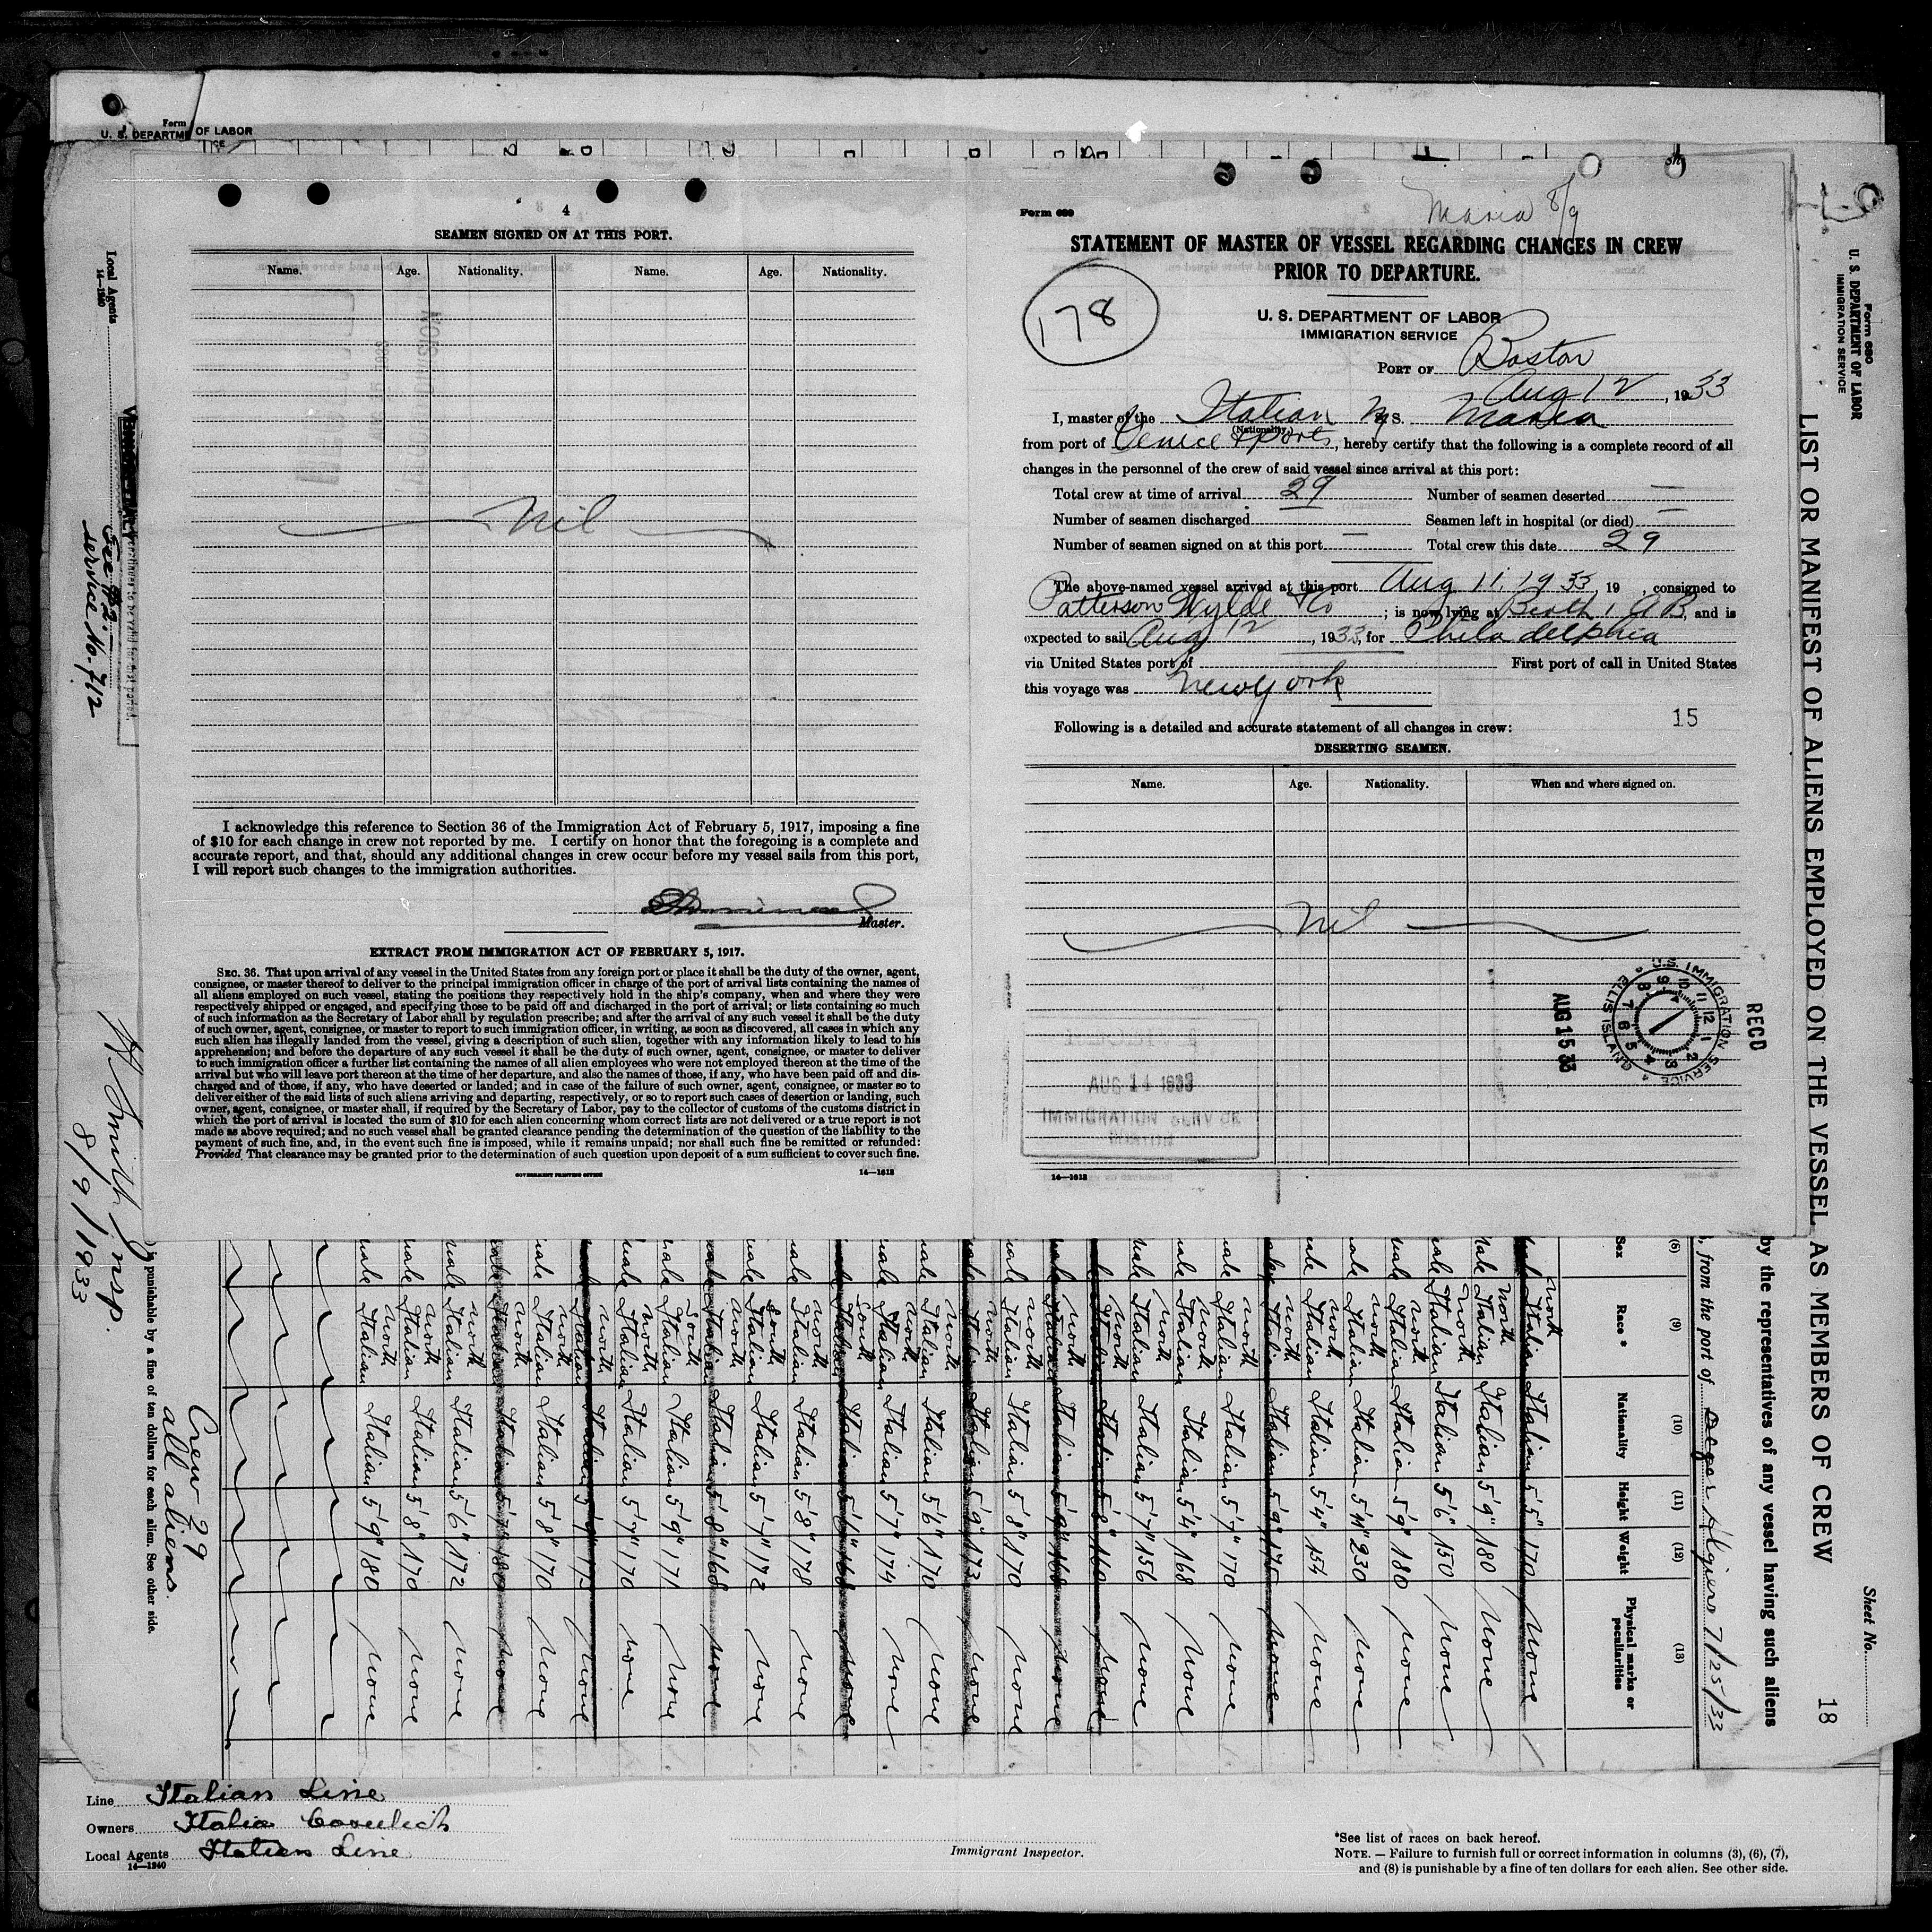 Form
U. S. DEPARTME OF LABOR
CE
4
SEAMEN SIGNED ON AT THIS PORT.
Name. Age. Nationality. Name. Age. Nationality.
Nil
I acknowledge this reference to Section 36 of the Immigration Act of February 5, 1917, imposing a fine
of $10 for each change in crew not reported by me. I certify on honor that the foregoing is a complete and
accurate report, and that, should any additional changes in crew occur before my vessel sails from this port,
I will report such changes to the immigration authorities.
Master.
EXTRACT FROM IMMIGRATION ACT OF FEBRUARY 5, 1917.
SEC. 36. That upon arrival of any vessel in the United States from any foreign port or place it shall be the duty of the owner, agent,
consignee, or master thereof to deliver to the principal immigration officer in charge of the port of arrival lists containing the names of
all aliens employed on such vessel, stating the positions they respectively hold in the ship's company, when and where they were
respectively shipped or engaged, and specifying those to be paid off and discharged in the port of arrival; or lists containing so much
of such information as the Secretary of Labor shall by regulation prescribe; and after the arrival of any such vessel it shall be the duty
of such owner, agent, consignee, or master to report to such immigration officer, in writing, as soon as discovered, all cases in which any
such alien has illegally landed from the vessel, giving a description of such alien, together with any information likely to lead to his
apprehension; and before the departure of any such vessel it shall be the duty of such owner, agent, consignee, or master to deliver
to such immigration officer a further list containing the names of all alien employees who were not employed thereon at the time of the
arrival but who will leave port thereon at the time of her departure, and also the names of those, if any, who have been paid off and dis-
charged and of those, if any, who have deserted or landed; and in case of the failure of such owner, agent, consignee, or master so to
deliver either of the said lists of such aliens arriving and departing, respectively, or so to report such cases of desertion or landing, such
owner, agent, consignee, or master shall, if required by the Secretary of Labor, pay to the collector of customs of the customs district in
which the port of arrival is located the sum of $10 for each alien concerning whom correct lists are not delivered or a true report is not
made as above required; and no such vessel shall be granted clearance pending the determination of the question of the liability to the
payment of such fine, and, in the event such fine is imposed, while it remains unpaid; nor shall such fine be remitted or refunded:
Provided, That clearance may be granted prior to the determination of such question upon deposit of a sum sufficient to cover such fine.
GOVERNMENT PRINTING OFFICE 14—1613
Form 689
Maria 8/9
STATEMENT OF MASTER OF VESSEL REGARDING CHANGES IN CREW
PRIOR TO DEPARTURE.
178
U. S. DEPARTMENT OF LABOR
IMMIGRATION SERVICE
PORT OF Boston
Aug 12, 1933
I, master of the Italian M S. Maria
(Nationality.)
from port of Venice & ports, hereby certify that the following is a complete record of all
changes in the personnel of the crew of said vessel since arrival at this port:
Total crew at time of arrival 29 Number of seamen deserted —
Number of seamen discharged Seamen left in hospital (or died) —
Number of seamen signed on at this port — Total crew this date 29
The above-named vessel arrived at this port Aug 11, 1933, 19 , consigned to
Patterson Wylde & Co ; is now lying at Berth 1 AB, and is
expected to sail Aug 12, 1933, for Philadelphia
via United States port of First port of call in United States
this voyage was New York
15
Following is a detailed and accurate statement of all changes in crew:
DESERTING SEAMEN.
Name. Age. Nationality. When and where signed on.
Nil
RECD
U.S. IMMIGRATION SERVICE
ELLIS ISLAND
AUG 15 33
AUG 14 1933
IMMIGRATION SERVICE
14—1613
Form 680
U. S. DEPARTMENT OF LABOR
IMMIGRATION SERVICE
LIST OR MANIFEST OF ALIENS EMPLOYED ON THE VESSEL AS MEMBERS OF CREW
Sheet No.
18
by the representatives of any vessel having such aliens
, from the port of Algiers 7/25/33
(8) (9) (10) (11) (12) (13)
Sex Race * Nationality Height Weight Physical marks or peculiarities
north Italian Italian 5'5" 170 None
north Italian Italian 5'9" 180 None
north Italian Italian 5'6" 150 none
north Italian Italian 5'9" 180 none
north Italian Italian 5'11" 230 none
north Italian Italian 5'4" 154 none
north Italian Italian 5'9" 175 none
north Italian Italian 5'7" 170 none
north Italian Italian 5'4" 168 None
north Italian Italian 5'7" 156 none
north Italian Italian 5'8" 160 none
north Italian Italian 5'9" 168 none
north Italian Italian 5'8" 170 none
north Italian Italian 5'9" 173 none
north Italian Italian 5'6" 170 none
north Italian Italian 5'7" 174 none
South Italian Italian 5'6" 168 none
north Italian Italian 5'8" 178 none
South Italian Italian 5'7" 172 none
north Italian Italian 5'8" 168 none
South Italian Italian 5'9" 171 none
north Italian Italian 5'7" 170 none
north Italian Italian 5'9" none
north Italian Italian 5'8" 170 none
north Italian Italian 5'7" 180 none
north Italian Italian 5'6" 172 none
north Italian Italian 5'8" 170 none
Italian Italian 5'9" 180 none
Crew 29
all aliens.
) is punishable by a fine of ten dollars for each alien. See other side.
Local Agents
14—1240
Fee #2.
service No. 712
Smith Insp.
8/9/1933
Line Italian Line
Owners Italia Cosulich
Local Agents Italian Line
14—1240
Immigrant Inspector.
*See list of races on back hereof.
NOTE. — Failure to furnish full or correct information in columns (3), (6), (7),
and (8) is punishable by a fine of ten dollars for each alien. See other side.